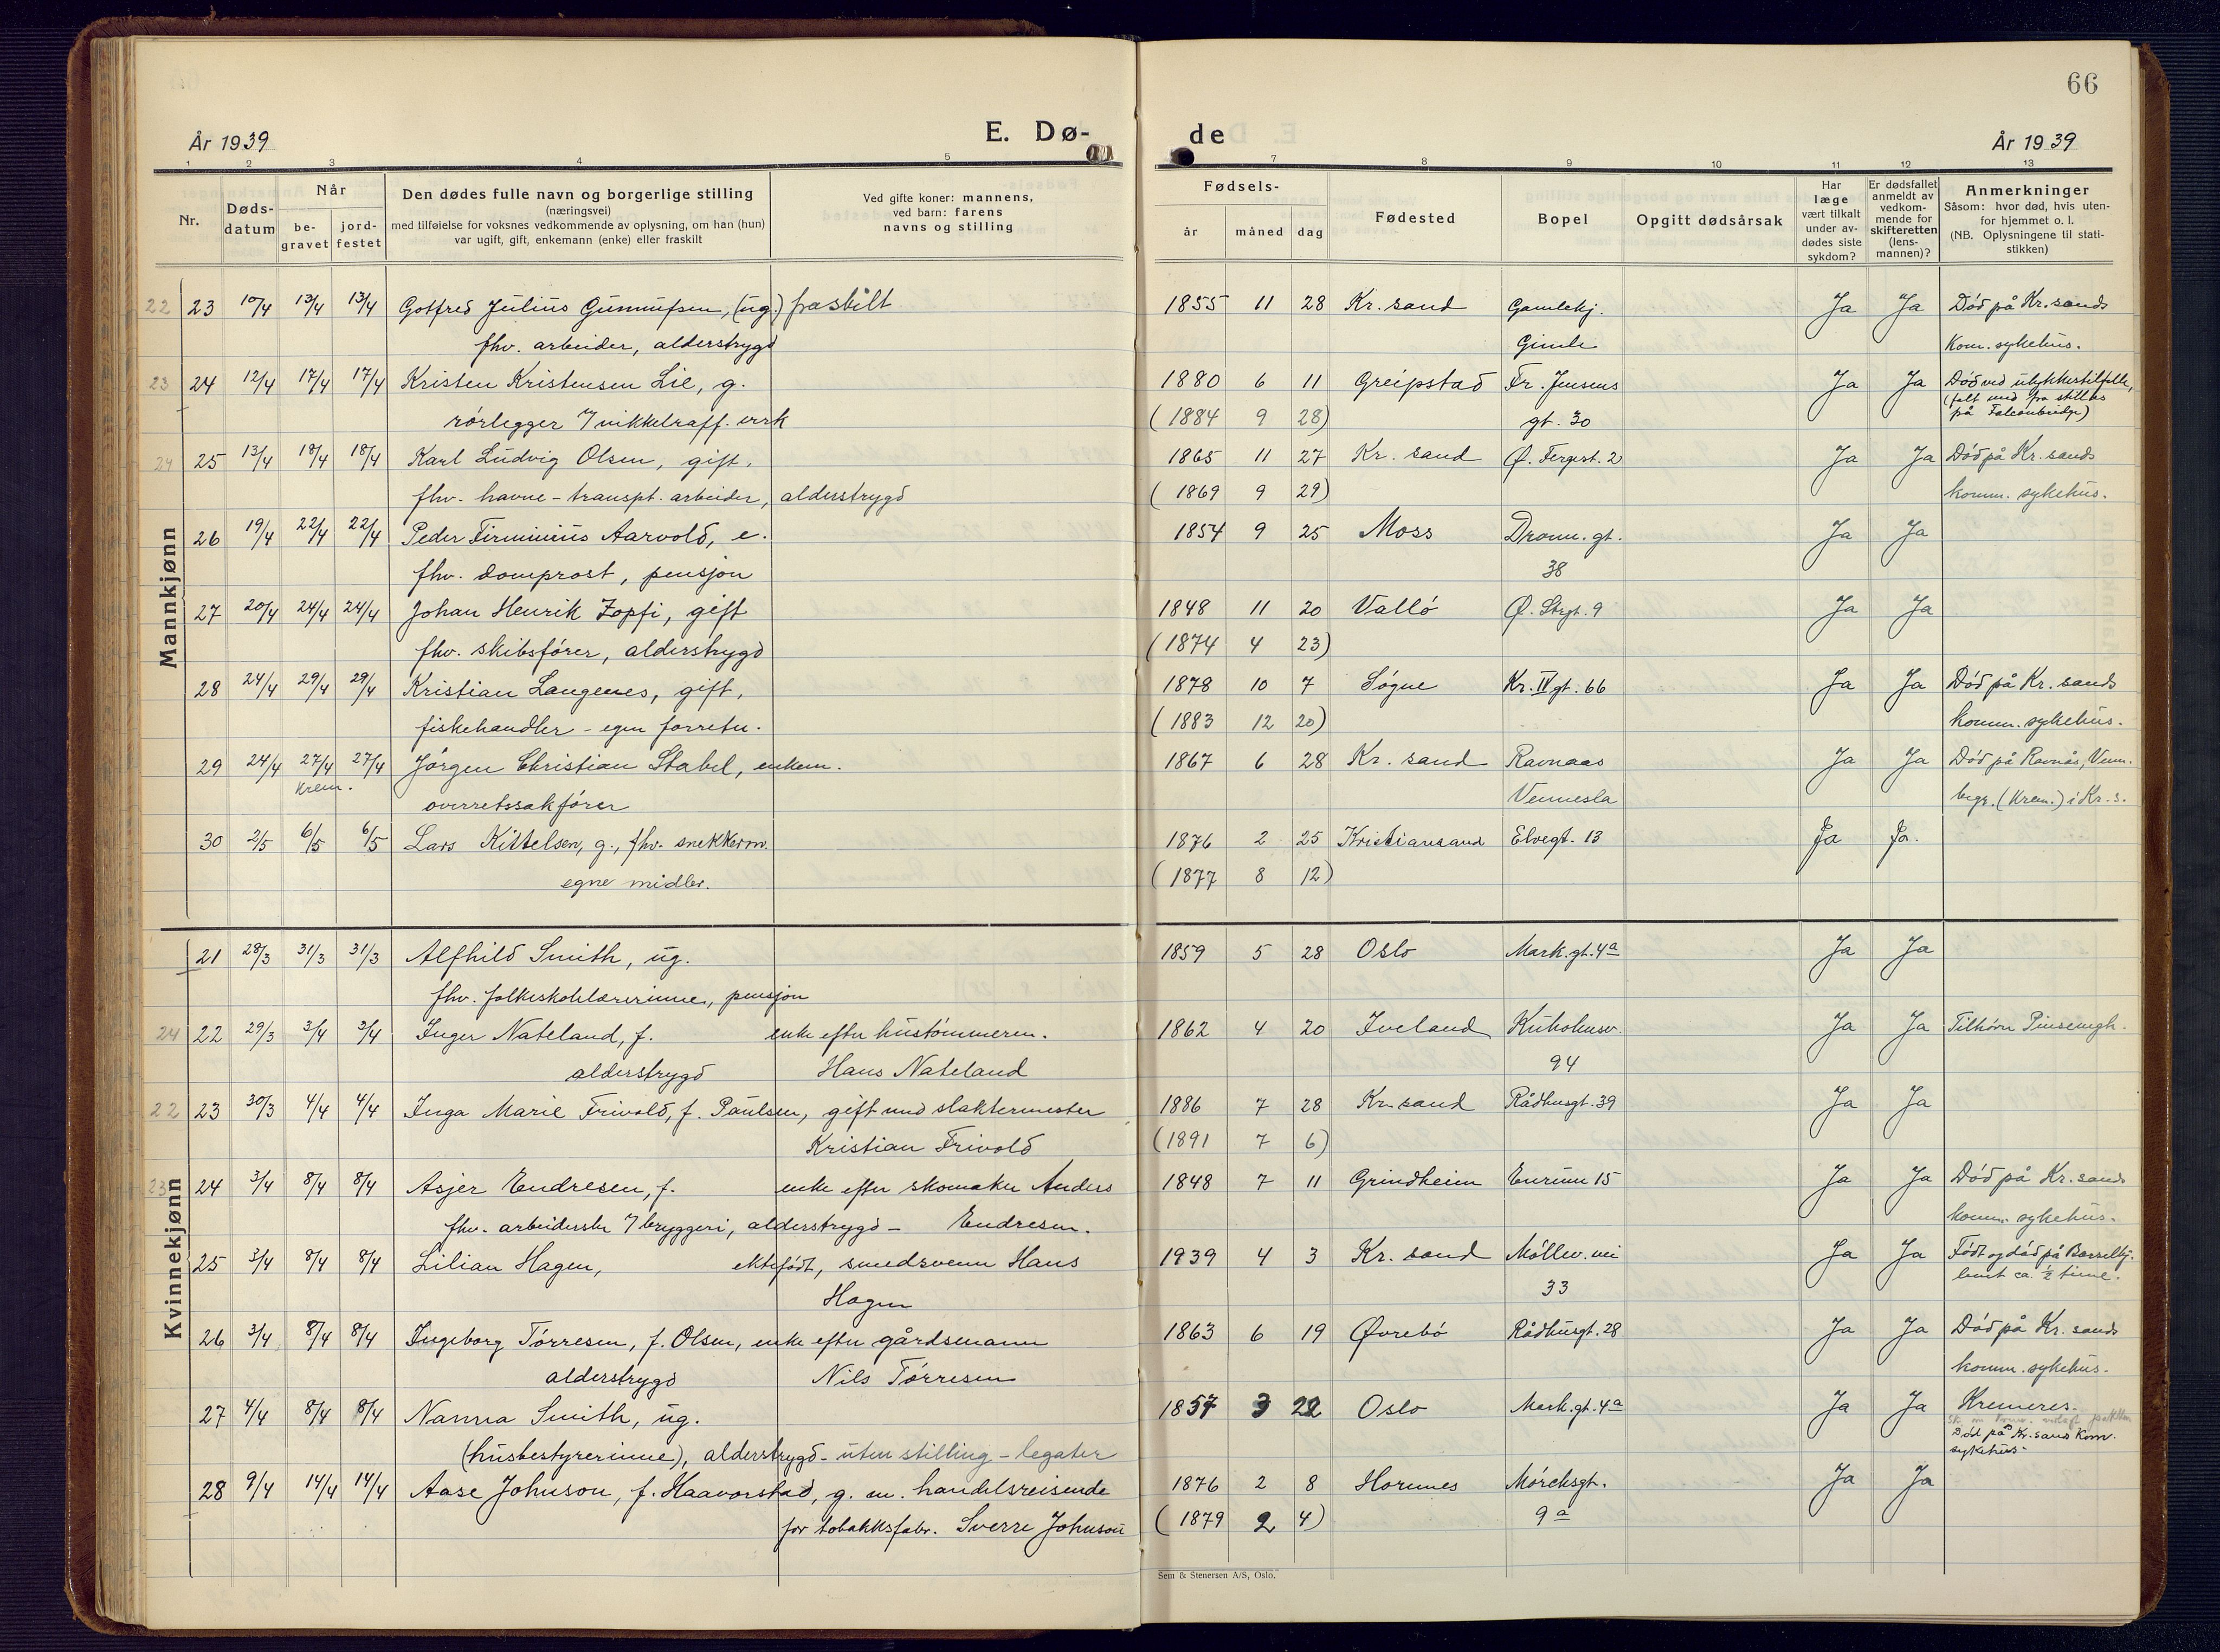 66
År 1939
E. Dø-
de
År 1939
1 2 3 4 5 7 8 9 10 11 12 13
Nr.
Døds-
datum
Når
be-
gravet
jord-
festet
Den dødes fulle navn og borgerlige stilling
(næringsvei)
med tilføielse for voksnes vedkommende av oplysning, om han (hun)
var ugift, gift, enkemann (enke) eller fraskilt
Ved gifte koner: mannens,
ved barn: farens
navns og stilling
Fødsels-
år måned dag
Fødested
Bopel
Opgitt dødsårsak
Har
læge
vært tilkalt
under av-
dødes siste
sykdom?
Er dødsfallet
anmeldt av
vedkom-
mende for
skifteretten
(lens-
mannen)?
Anmerkninger
Såsom: hvor død, hvis uten-
for hjemmet o. l.
(NB. Oplysningene til stati-
stikken)
Mannkjønn
22 23 10/4 13/4 13/4 Gotfred Julius Gunnufsen, (ug.) fraskilt 1855 11 28 Kr. sand Gamlekj. Ja Ja Död på Kr. sands
fhv. arbeider, alderstrygd Gimle Kom. sykehus.
23 24 12/4 17/4 17/4 Kristen Kristensen Lie, g. 1880 6 11 Greipstad Fr. Jensens Ja Ja Död ved ulykkestilfelle,
(falt ned fra stillas
rörlegger / nikkelraff. verk (1884 9 28) gt. 30 på Falconbridge)
24 25 13/4 18/4 18/4 Karl Ludvig Olsen, gift, 1865 11 27 Kr. sand Ø. Fergest. 2 Ja Ja Död på Kr. sands
fhv. havne-transpt. arbeider, alderstrygd (1869 9 29) komm. sykehus.
26 19/4 22/4 22/4 Peder Firminius Aarvold, e. 1854 9 25 Moss Dronn. gt. Ja Ja
fhv. domprost, pensjon 38
27 20/4 24/4 24/4 Johan Henrik Zopfi, gift 1848 11 20 Vallö Ø. Strgt. 9 Ja Ja
fhv. skibsförer, alderstrygd (1874 4 23)
28 24/4 29/4 29/4 Kristian Langenes, gift, 1878 10 7 Sögne Kr. IV gt. 66 Ja Ja Död på Kr. sands
fiskehandler - egen forretn. (1883 12 20) komm. sykehus.
29 24/4 27/4 27/4 Jörgen Christian Stabel, enkem. 1867 6 28 Kr. sand Ravnaas Ja Ja Död på Ravnås, Venn.
Krem. overretssakförer Vennesla begr. (Krem.) i Kr. s.
30 2/5 6/5 6/5 Lars Kittelsen, g., fhv. snekkerm. 1876 2 25 Kristiansand Elvegt. 13 Ja Ja.
egne midler. (1877 8 12)
Kvinnekjønn
21 28/3 31/3 31/3 Alfhild Smith, ug. 1859 5 28 Oslo Mark. gt. 4a Ja Ja
fhv. folkeskolelærerinne, pensjon
24 22 29/3 3/4 3/4 Inger Nateland, f. enke efter hustömmerm. 1862 4 20 Iveland Kuholmsv. Ja Ja Tilhörer Pinsemgh.
alderstrygd Hans Nateland 94
22 23 30/3 4/4 4/4 Inga Marie Frivold, f. Paulsen, gift med slaktermester 1886 7 28 Kr. sand Rådhusgt. 39 Ja Ja
Kristian Frivold (1891 7 6)
23 24 3/4 8/4 8/4 Asjer Endresen, f. enke efter skomaker Anders 1848 7 11 Grindheim Enrum 15 Ja Ja Död på Kr. sands
fhv. arbeiderske / bryggeri, alderstrygd - Endresen. komm. sykehus.
25 3/4 8/4 8/4 Lilian Hagen, ektefödt, smedsvenn Hans 1939 4 3 Kr. sand Möllev. vei Ja Ja Födt og död på Barselhj.
Hagen 33 levet ca. ½ time.
26 3/4 8/4 8/4 Ingeborg Törresen, f. Olsen, enke efter gårdsmann 1863 6 19 Øvrebö Rådhusgt. 28 Ja Ja Död på Kr. sands
alderstrygd Nils Törresen komm. sykehus.
27 4/4 8/4 8/4 Nanna Smith, ug. 1857 3 22 Oslo Mark. gt. 4a Ja Ja Kremeres.
Död på Kr. sand Kom.
(husbestyrerinne), alderstrygd - uten stilling - legater sykehus.
28 9/4 14/4 14/4 Aase Johnson, f. Haavorstad, g. m. handelsreisende 1876 2 8 Hornnes Mörcksgt. Ja Ja
for tobakksfabr. Sverre Johnson (1879 2 4) 9a
Sem & Stenersen A/S, Oslo.